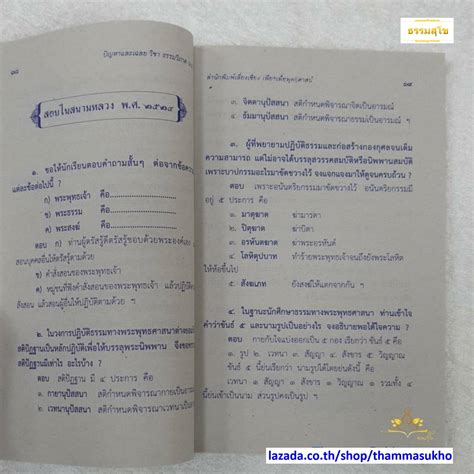 ธรรมสุโข
๑๘
ปัญหาและเฉลย วิชา ธรรมวิภาค
สอบในสนามหลวง พ.ศ. ๒๕๒๔
๑. ขอให้นักเรียนตอบคำถามสั้นๆ ต่อจากข้อความ
แต่ละข้อต่อไปนี้ ?
ก) พระพุทธเจ้า คือ....................
ข) พระธรรม คือ....................
ค) พระสงฆ์ คือ....................
ตอบ ก) ท่านผู้ตรัสรู้ดีตรัสรู้ชอบด้วยพระองค์เอง
สอนบุคคลอื่นให้ตรัสรู้ตามด้วย
ข) คำสั่งสอนของพระพุทธเจ้า
ค) หมู่ชนที่ฟังคำสั่งสอนของพระพุทธเจ้า แล้วปฏิบัติตาม
สั่งสอน แล้วสอนผู้อื่นให้ปฏิบัติตามด้วย ฯ
๒. ในวงการปฏิบัติธรรมทางพระพุทธศาสนาต่างยอมรับ
สติปัฏฐานเป็นหลักปฏิบัติเพื่อให้บรรลุพระนิพพาน จึงขอทราบ
สติปัฏฐานมีเท่าไร อะไรบ้าง ?
ตอบ สติปัฏฐาน มี ๔ ประการ คือ
๑. กายานุปัสสนา สติกำหนดพิจารณากายเป็นอารมณ์
๒. เวทนานุปัสสนา สติกำหนดพิจารณาเวทนาเป็น
สำนักพิมพ์เลี่ยงเชียง เพียรเพื่อพุทธศาสน์
๑๙
๓. จิตตานุปัสสนา สติกำหนดพิจารณาจิตเป็นอารมณ์
๔. ธัมมานุปัสสนา สติกำหนดพิจารณาธรรมเป็นอารมณ์ ฯ
๓. ผู้ที่พยายามปฏิบัติธรรมและก่อสร้างกองกุศลจนเต็ม
ความสามารถ แต่ไม่อาจได้บรรลุสวรรคสมบัติหรือนิพพานสมบัติ
เพราะบาปกรรมอะไรมาขัดขวางไว้ จงแจกแจงมาให้ดูจนครบถ้วน ?
ตอบ เพราะอนันตริยกรรมมาขัดขวางไว้ อนันตริยกรรมมี
อยู่ ๕ ประการ คือ
๑. มาตุฆาต ฆ่ามารดา
๒. ปิตุฆาต ฆ่าบิดา
๓. อรหันตฆาต ฆ่าพระอรหันต์
๔. โลหิตุปบาท ทำร้ายพระพุทธเจ้าจนถึงยังพระโลหิต
ให้ห้อขึ้นไป
๕. สังฆเภท ยังสงฆ์ให้แตกจากกัน ฯ
๔. ในฐานะนักศึกษาธรรมทางพระพุทธศาสนา ท่านเข้าใจ
คำว่าขันธ์ ๕ และนามรูปเป็นอย่างไร จงอธิบายพอได้ใจความ ?
ตอบ กายกับใจแบ่งออกเป็น ๕ กอง เรียกว่า ขันธ์ ๕ คือ
๑ รูป ๒. เวทนา ๓ สัญญา ๔ สังขาร ๕ วิญญาณ
ขันธ์ ๕ นี้ย่นเรียกว่า นามรูปได้โดยย่นดังนี้ คือ
เวทนา ๑ สัญญา ๑ สังขาร ๑ วิญญาณ ๑ รวมทั้ง ๔
นี้ย่นเข้าเป็นนาม ส่วนรูปคงเป็นรูป ฯ
lazada.co.th/shop/thammasukho